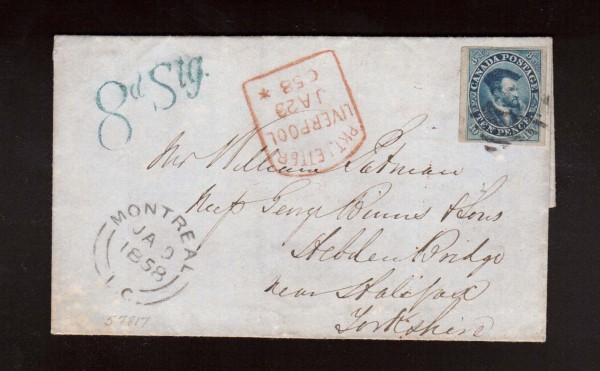 8d Stg.
PKT. LETTER
LIVERPOOL
JA 23
C58 *
CANADA POSTAGE
TEN PENCE
Mr William
Messrs George Binns & Sons
Hebden Bridge
near Halifax
Yorkshire
MONTREAL
JA 9
1858
L.C.
57817